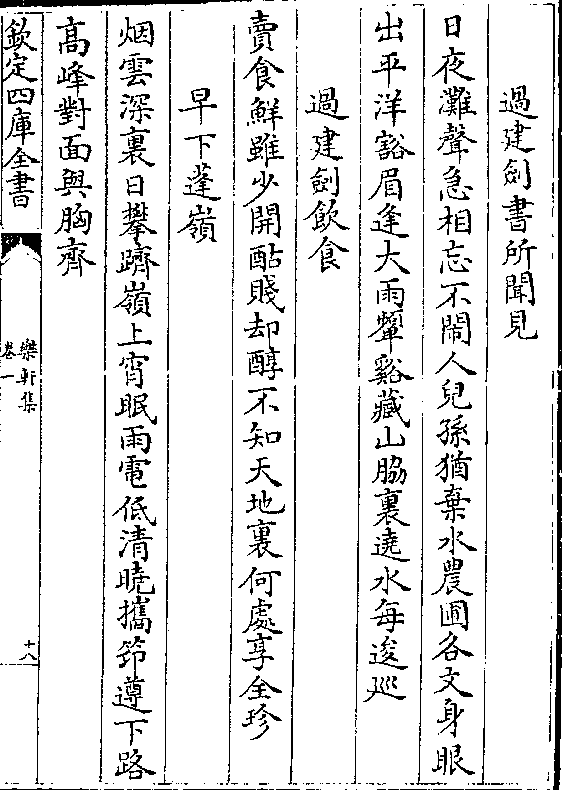 過建劍書所聞見
日夜灘聲急相忘不鬧人兒孫猶棄水農圃各文身眼
出平洋豁眉逢大雨顰谿藏山脇裏遶水每逡巡
過建劍飲食
賣食鮮雖少開酤賤却醇不知天地裏何處享全珍
早下蓬嶺
烟雲深裏日攀躋嶺上宵眠雨電低清曉攜笻遵下路
高峰對面與胸齊
欽定四庫全書
樂軒集
卷一
十八